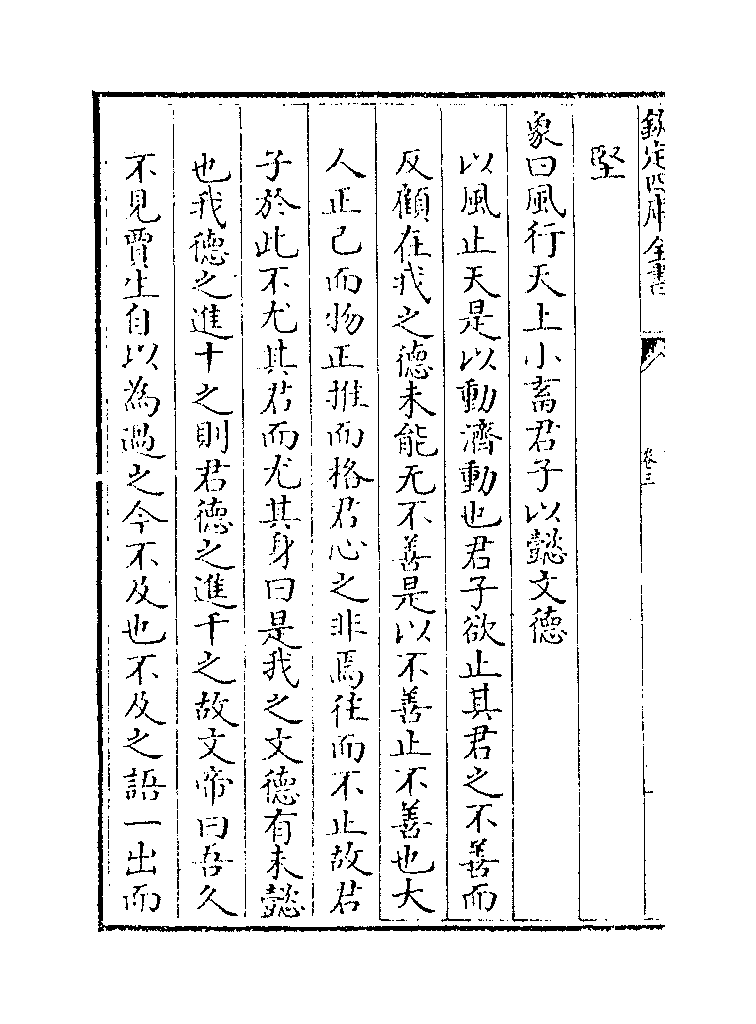 欽定四庫全書
卷三
堅
象曰風行天上小畜君子以懿文德
以風止天是以動濟動也君子欲止其君之不善而
反顧在我之德未能无不善是以不善止不善也大
人正己而物正推而格君心之非焉往而不止故君
子於此不尤其君而尤其身曰是我之文德有未懿
也我德之進十之則君德之進千之故文帝曰吾久
不見賈生自以為過之今不及也不及之語一出而